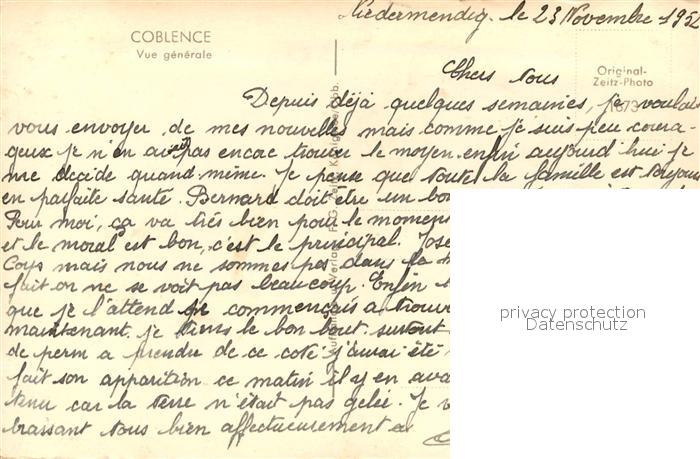 Niedermendig. le 23 Novembre 1952
COBLENCE
Vue générale
Original-
Zeitz-Photo
1673
Chers tous
Depuis déjà quelques semaines, je voulais
vous envoyer de mes nouvelles mais comme je suis peu coura-
geux je n'en avait pas encore trouver le moyen enfin aujourd'hui je
me décide quand même. Je pense que toute la famille est toujours
en parfaite santé. Bernard doit être un bon
Pour moi, ça va très bien pour le moment
et le moral est bon, c'est le principal. José
Coys mais nous ne sommes pas dans la
fait on ne se voit pas beaucoup. Enfin
que je l'attend je commençais a trouver
maintenant je tiens le bon bout surtout
de perm a prendre de ce coté j'aurai été
fait son apparition ce matin il y en avait
tenu car la terre n'était pas gelée. Je v
brassant tous bien affectueusement
privacy protection
Datenschutz